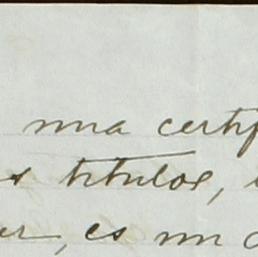 una certif
s titulos,
ur, es un